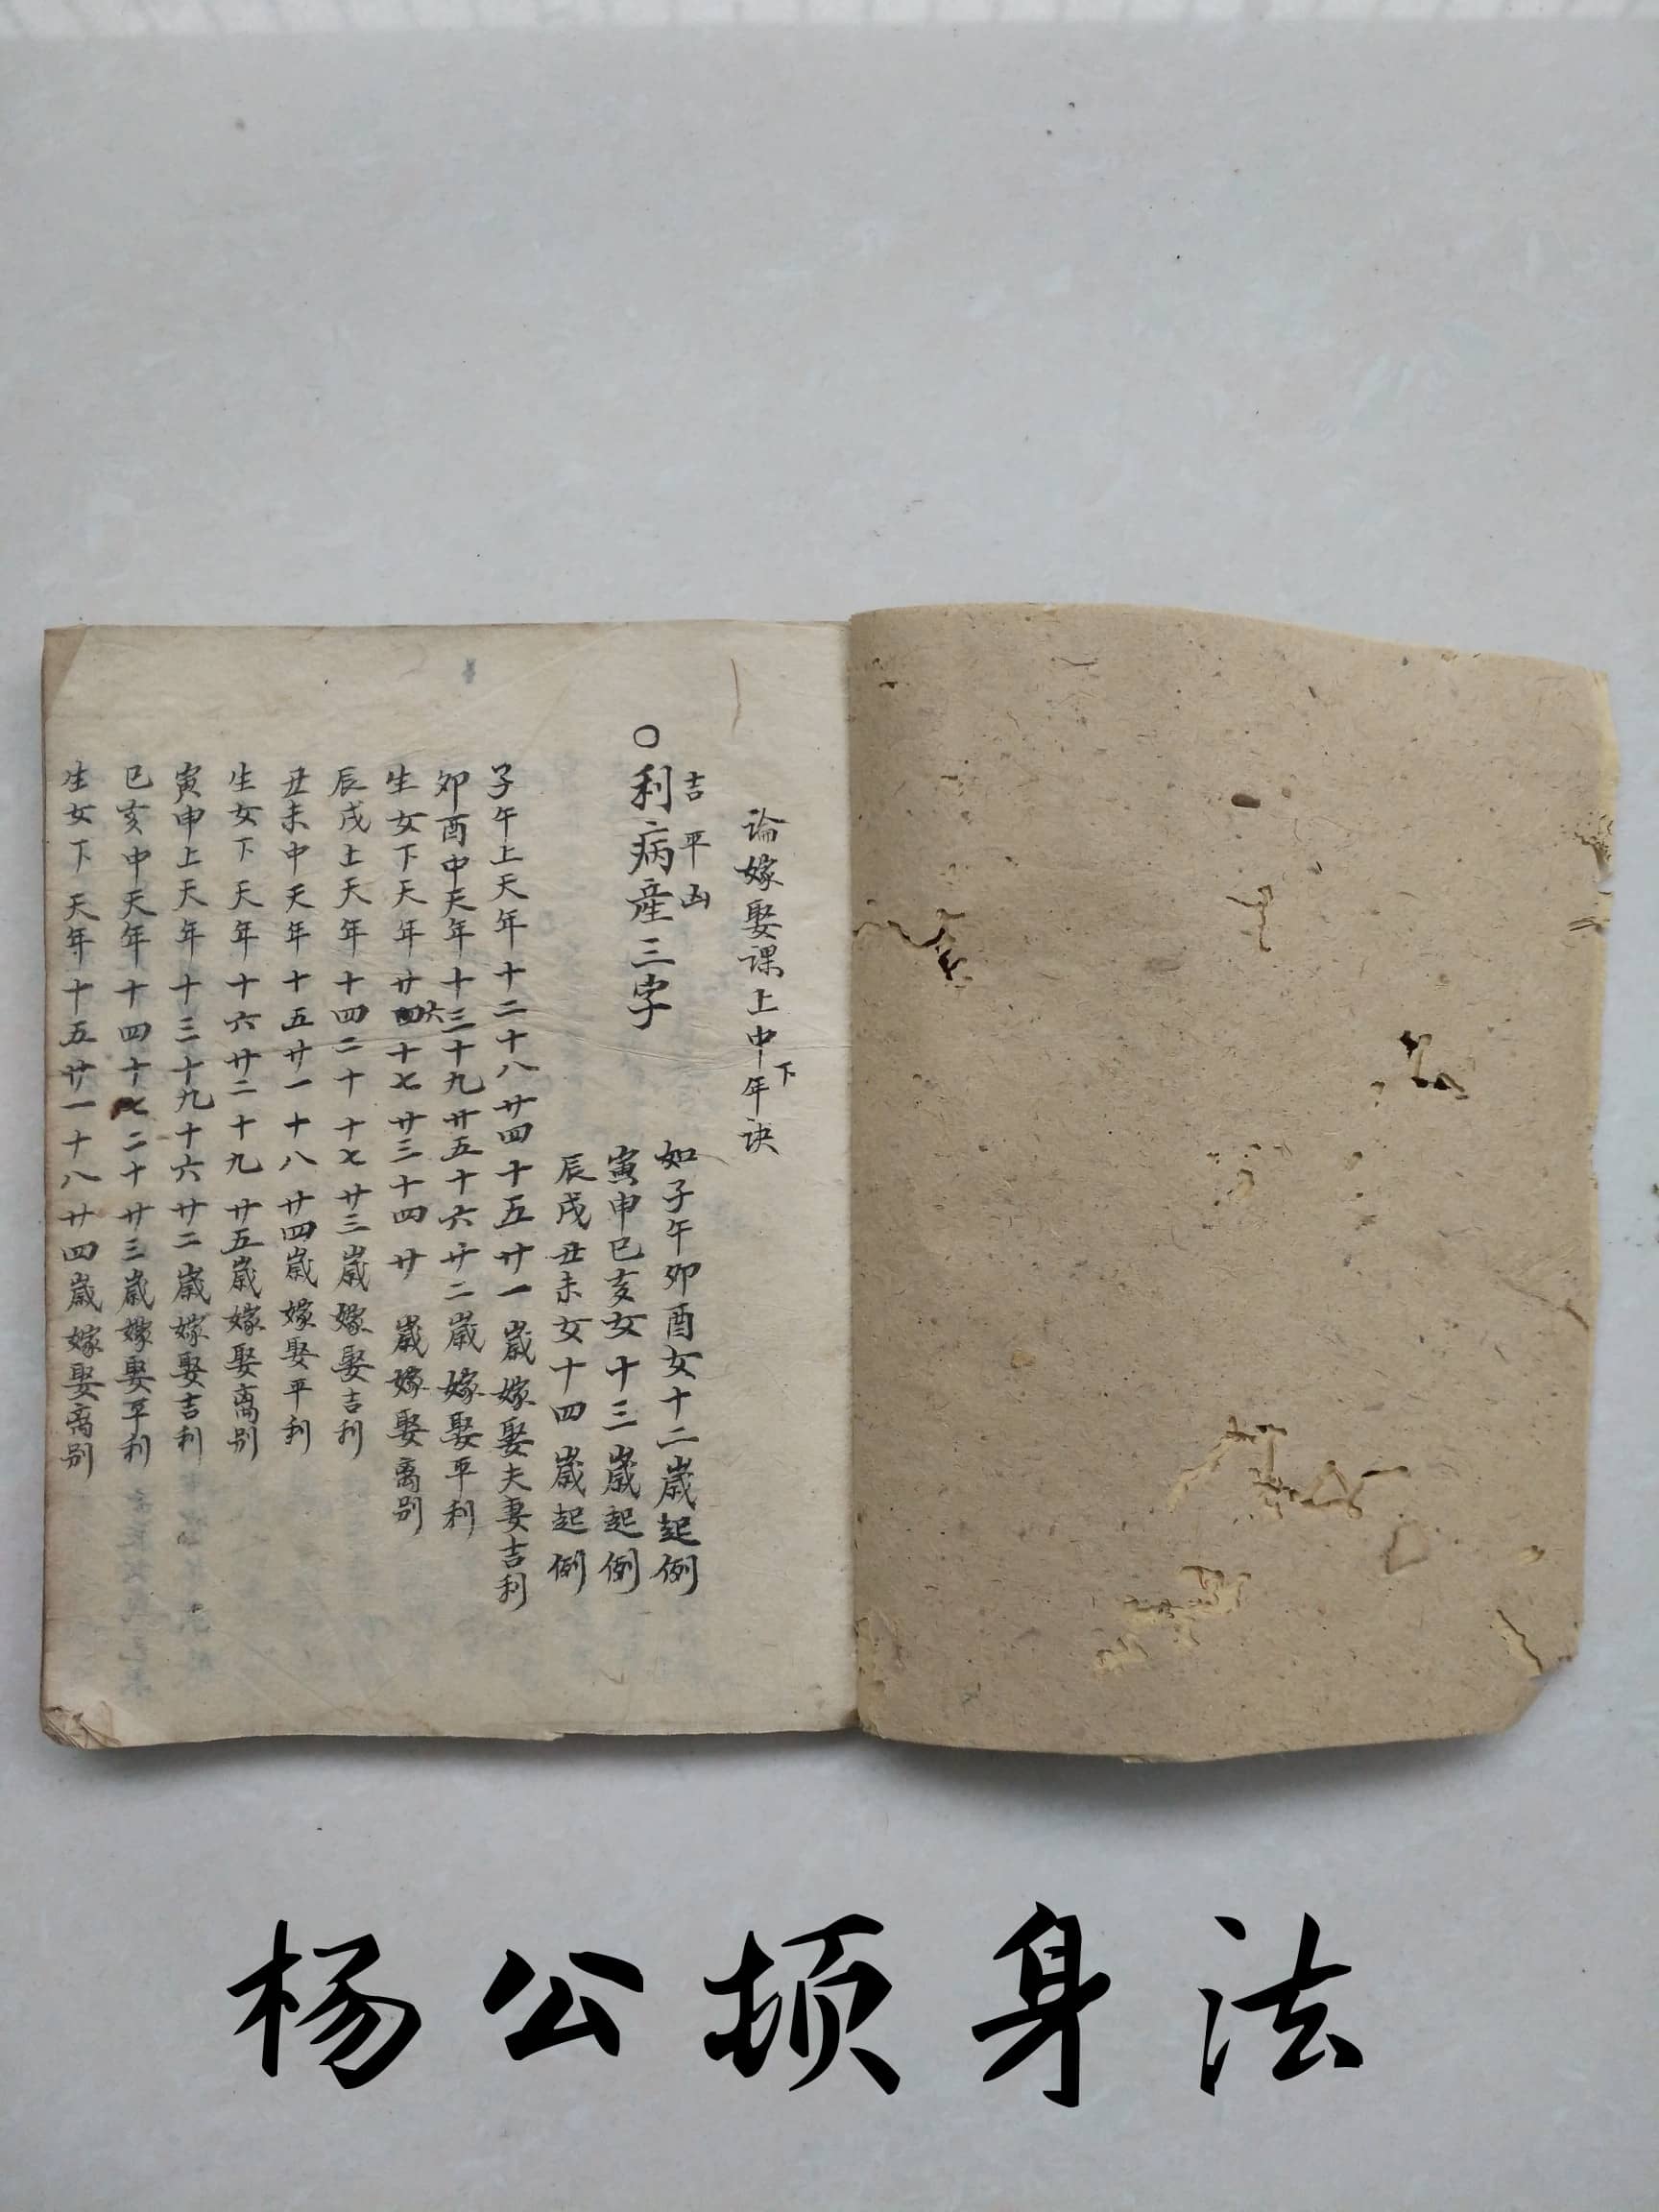 論嫁娶課上中下年訣
吉平凶
○利病産三字
如子午卯酉女十二歲起例
寅申巳亥女十三歲起例
辰戌丑未女十四歲起例
子午上天年十二十八廿四十五廿一歲嫁娶夫妻吉利
卯酉中天年十三十九廿五十六廿二歲嫁娶平利
生女下天年廿六十七廿三十四廿歲嫁娶离别
辰戌上天年十四二十十七廿三歲嫁娶吉利
丑未中天年十五廿一十八廿四歲嫁娶平利
生女下天年十六廿二十九廿五歲嫁娶离别
寅申上天年十三十九十六廿二歲嫁娶吉利
巳亥中天年十四十七二十廿三歲嫁娶平利
生女下天年十五廿一十八廿四歲嫁娶离别
杨公损身法